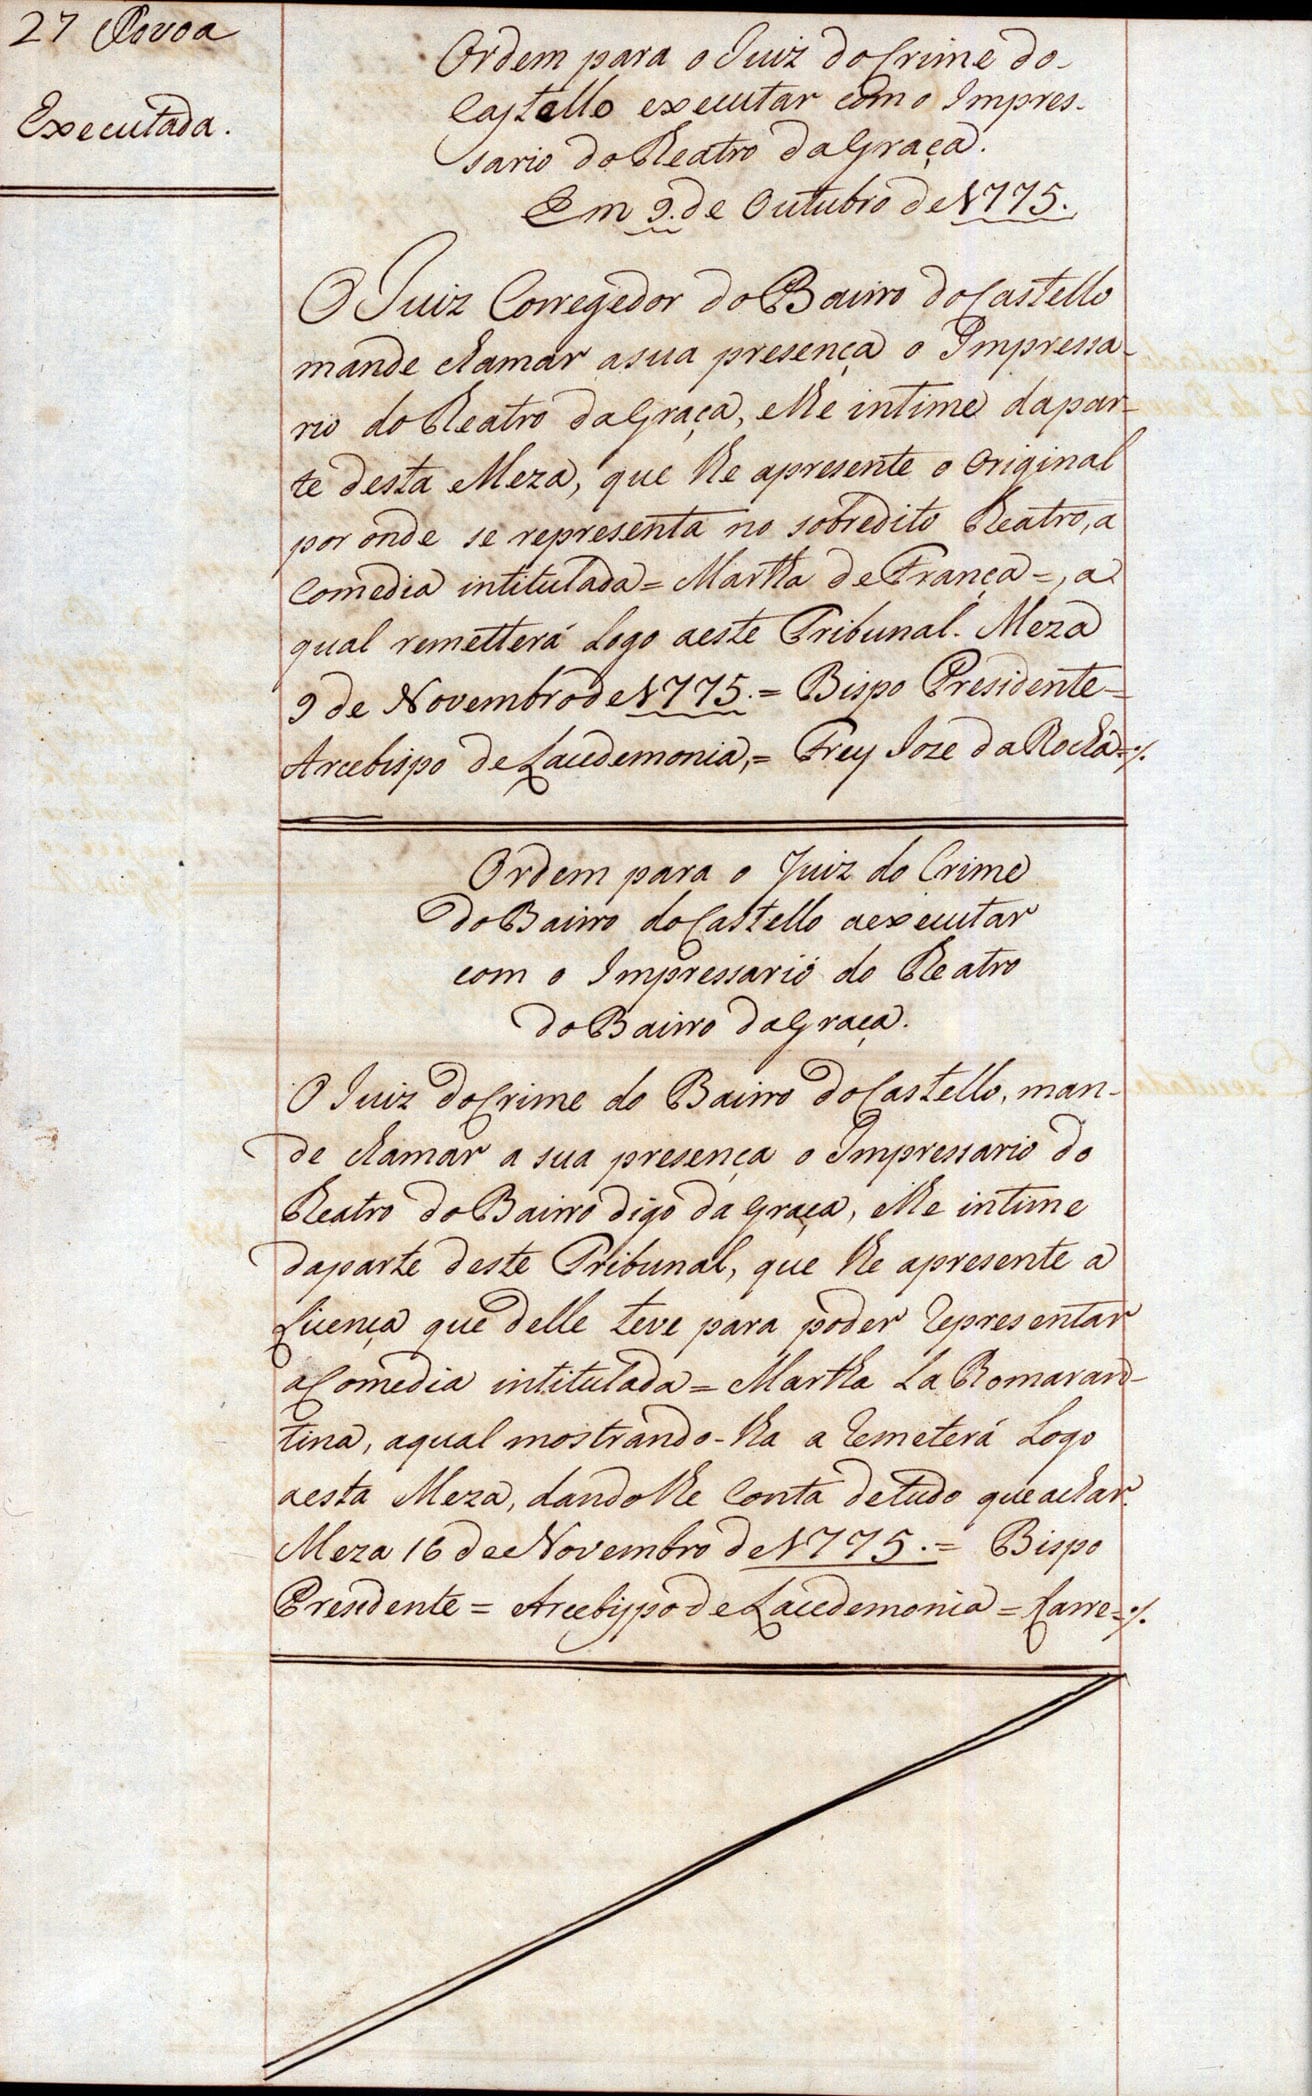 27 Povoa
Executada.
Ordem para o Juiz do Crime do
Castello executar com o Impres-
sario do Theatro da Graça.
Em 9. de Outubro de 1775.
O Juiz Corregedor do Bairro do Castello
mande chamar a sua presença o Impressa-
rio do Theatro da Graça, e lhe intime da par-
te desta Meza, que lhe apresente o Original
por onde se representa no sobredito Theatro, a
Comedia intitulada = Martha de França =, a
qual remetterá logo a este Tribunal. Meza
9 de Novembro de 1775. = Bispo Presidente =
Arcebispo de Lacedemonia, = Frey Joze da Rocha =./.
Ordem para o Juiz do Crime
do Bairro do Castello a executar
com o Impressario do Theatro
do Bairro da Graça.
O Juiz do Crime do Bairro do Castello, man-
de chamar a sua presença o Impressario do
Theatro do Bairro digo da Graça, e lhe intime
da parte deste Tribunal, que lhe apresente a
Licença que delle teve para poder representar
a Comedia intitulada = Martha La Romaran-
tina, a qual mostrando-lha a remeterá logo
a esta Meza, dando lhe conta de tudo que achar.
Meza 16 de Novembro de 1775. = Bispo
Presidente = Arcebispo de Lacedemonia =